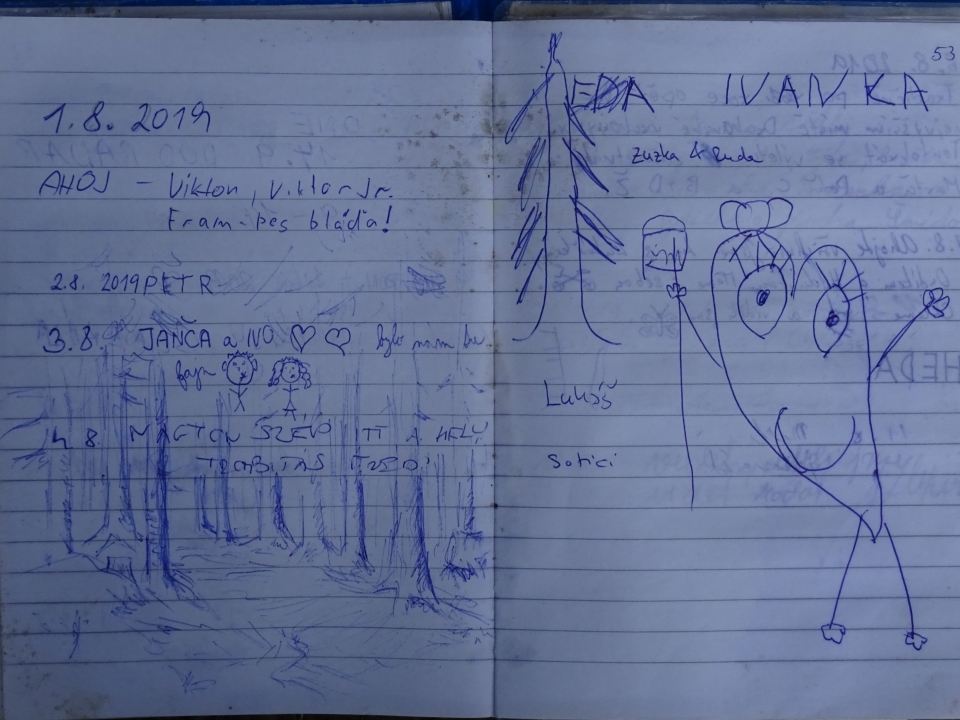 1.8. 2019
AHOJ - Viktor, Viktor Jr.
Fram - pes bláďa!
2.8. 2019 PETR
3.8. JANČA a IVO ♡ ♡ bylo nám
fajn
4.8. NAGYON SZÉP ITT A HELY
53
EDA IVANKA
Zuzka & Ruda
Lukáš
Sotíci